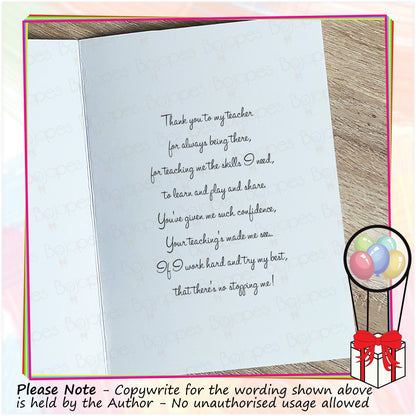 Thank you to my teacher
for always being there,
for teaching me the skills I need,
to learn and play and share.
You've given me such confidence,
Your teaching's made me see..
If I work hard and try my best,
that there's no stopping me!
Please Note - Copywrite for the wording shown above
is held by the Author - No unauthorised usage allowed